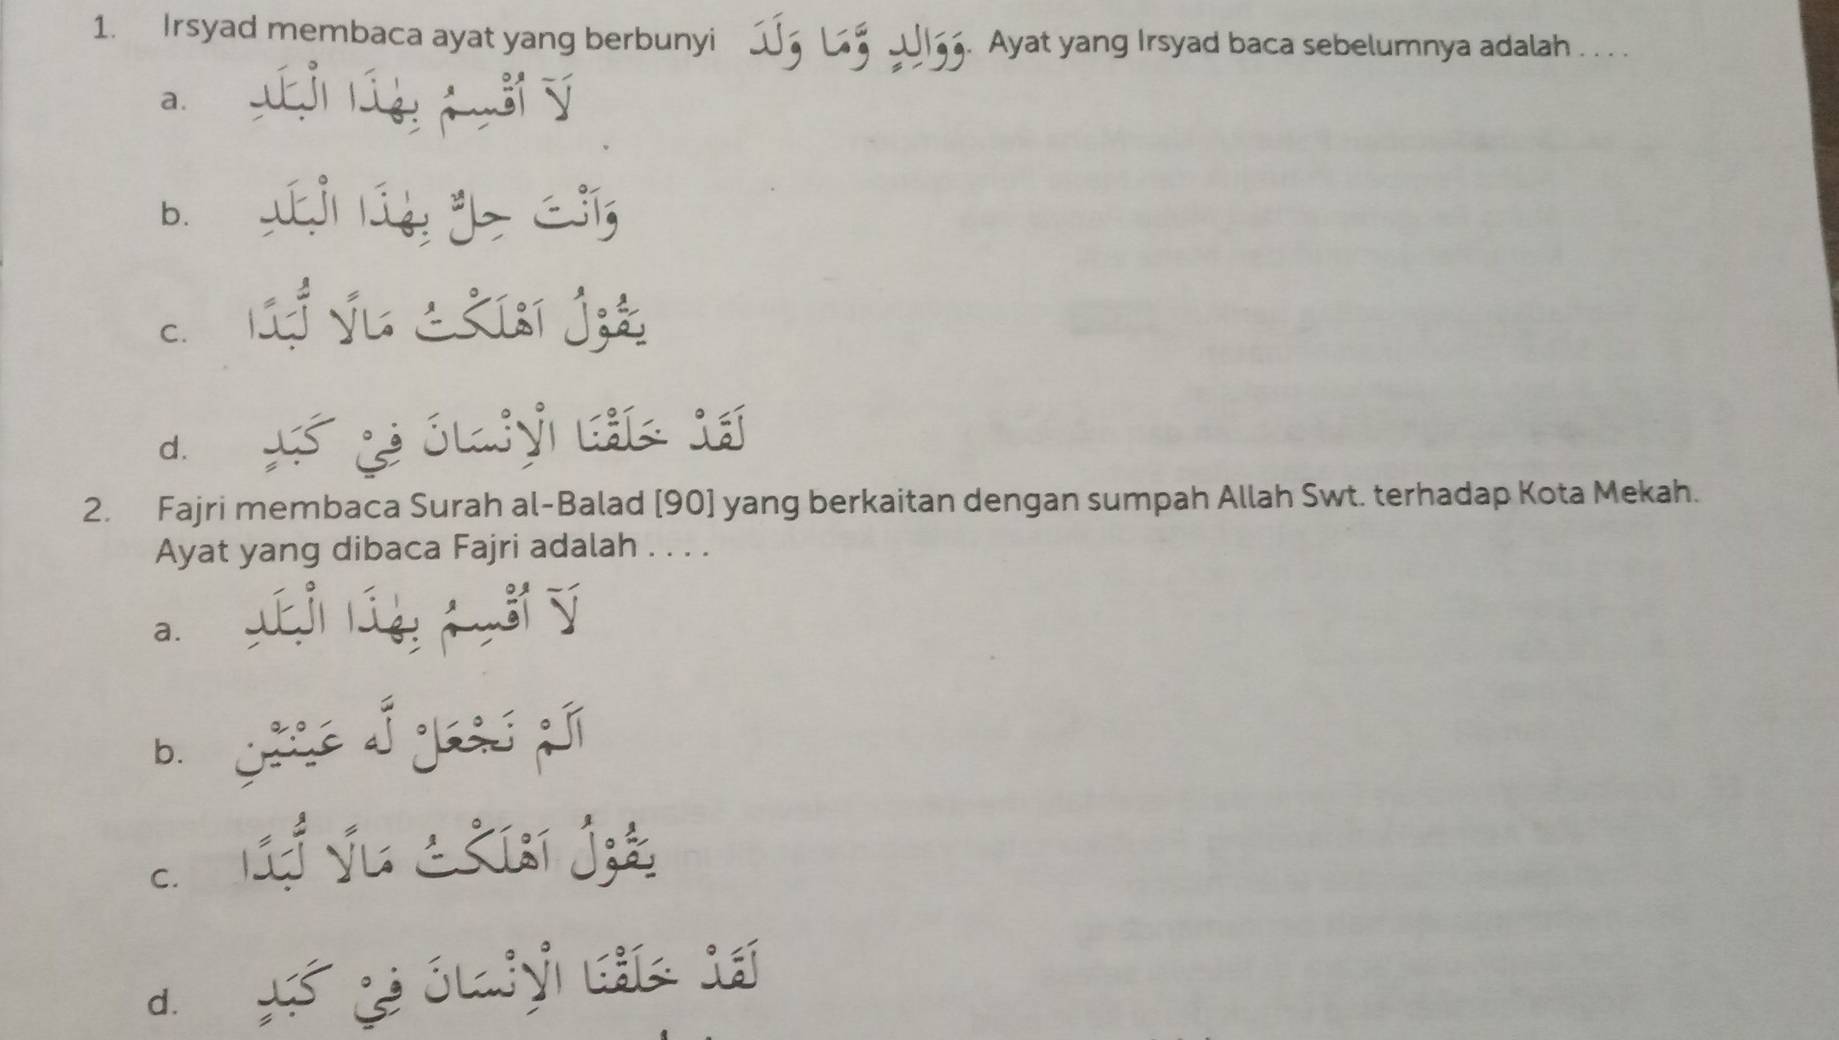 1. Irsyad membaca ayat yang berbunyi وَوَالِدٍ وَّمَا وَلَدَ. Ayat yang Irsyad baca sebelumnya adalah . . . .
a. لَآ اُقْسِمُ بِهٰذَا الْبَلَدِ
b. وَاَنْتَ حِلٌّۢ بِهٰذَا الْبَلَدِ
c. يَقُوْلُ اَهْلَكْتُ مَالًا لُّبَدًا
d. لَقَدْ خَلَقْنَا الْاِنْسَانَ فِيْ كَبَدٍ
2. Fajri membaca Surah al-Balad [90] yang berkaitan dengan sumpah Allah Swt. terhadap Kota Mekah.
Ayat yang dibaca Fajri adalah . . . .
a. لَآ اُقْسِمُ بِهٰذَا الْبَلَدِ
b. اَلَمْ نَجْعَلْ لَّه عَيْنَيْنِ
c. يَقُوْلُ اَهْلَكْتُ مَالًا لُّبَدًا
d. لَقَدْ خَلَقْنَا الْاِنْسَانَ فِيْ كَبَدٍ